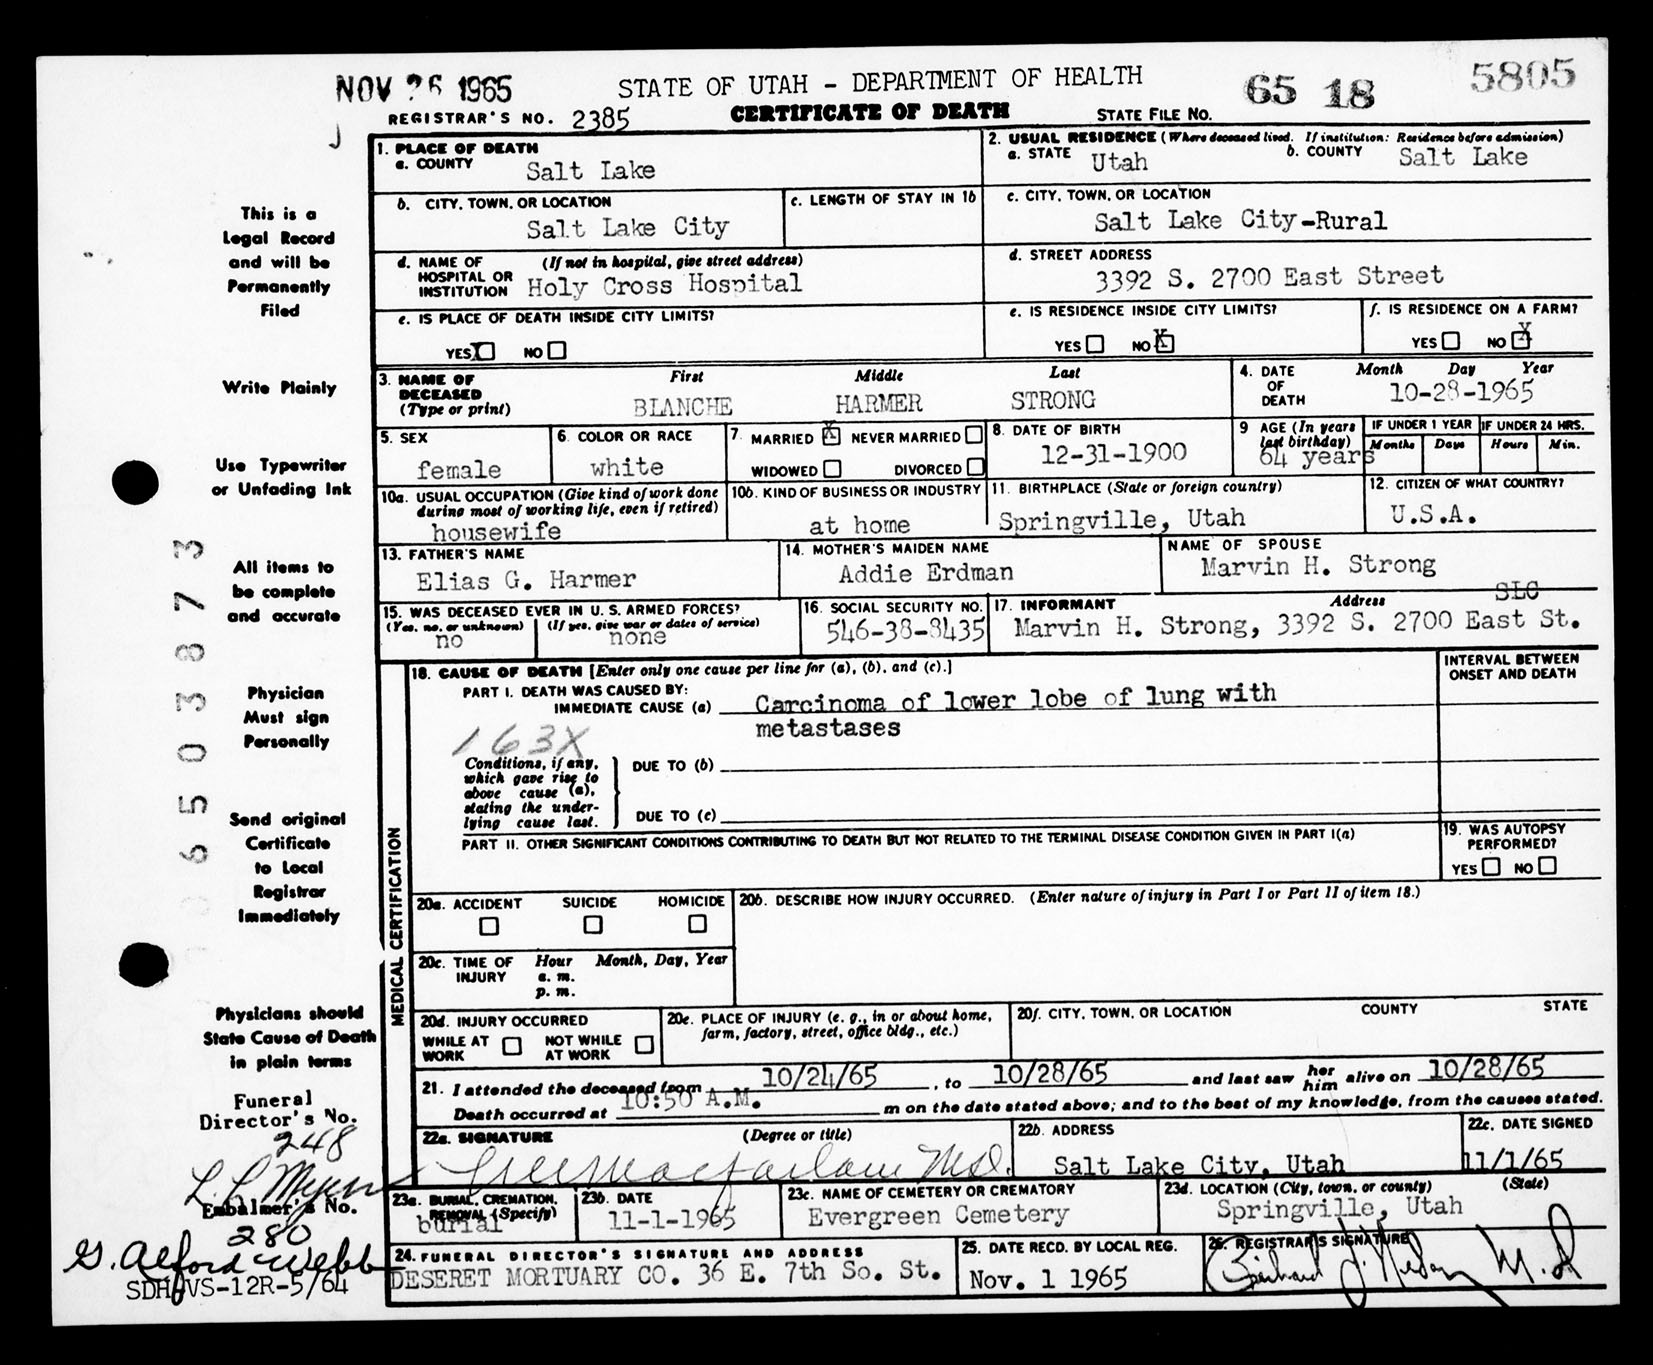 NOV 26 1965
STATE OF UTAH - DEPARTMENT OF HEALTH
65 18 5805
REGISTRAR'S NO. 2385
CERTIFICATE OF DEATH
STATE FILE NO.
This is a
Legal Record
and will be
Permanently
Filed
Write Plainly
Use Typewriter
or Unfading Ink
All items to
be complete
and accurate
Physician
Must sign
Personally
Send original
Certificate
to Local
Registrar
Immediately
Physicians should
State Cause of Death
in plain terms
Funeral
Director's No.
248
L. L. Myers
Embalmer's No.
280
G. Alford Webb
SDH-VS-12R-5/64
6503873
1. PLACE OF DEATH
a. COUNTY Salt Lake
2. USUAL RESIDENCE (Where deceased lived. If institution: Residence before admission)
a. STATE Utah b. COUNTY Salt Lake
b. CITY, TOWN, OR LOCATION
Salt Lake City
c. LENGTH OF STAY IN 1b
c. CITY, TOWN, OR LOCATION
Salt Lake City-Rural
d. NAME OF HOSPITAL OR INSTITUTION (If not in hospital, give street address)
Holy Cross Hospital
d. STREET ADDRESS
3392 S. 2700 East Street
e. IS PLACE OF DEATH INSIDE CITY LIMITS?
YES X NO
e. IS RESIDENCE INSIDE CITY LIMITS?
YES NO X
f. IS RESIDENCE ON A FARM?
YES NO X
3. NAME OF DECEASED (Type or print)
First Middle Last
BLANCHE HARMER STRONG
4. DATE OF DEATH
Month Day Year
10-28-1965
5. SEX
female
6. COLOR OR RACE
white
7. MARRIED X NEVER MARRIED
WIDOWED DIVORCED
8. DATE OF BIRTH
12-31-1900
9 AGE (In years last birthday)
64 years
IF UNDER 1 YEAR
Months Days
IF UNDER 24 HRS.
Hours Min.
10a. USUAL OCCUPATION (Give kind of work done during most of working life, even if retired)
housewife
10b. KIND OF BUSINESS OR INDUSTRY
at home
11. BIRTHPLACE (State or foreign country)
Springville, Utah
12. CITIZEN OF WHAT COUNTRY?
U.S.A.
13. FATHER'S NAME
Elias G. Harmer
14. MOTHER'S MAIDEN NAME
Addie Erdman
NAME OF SPOUSE
Marvin H. Strong
15. WAS DECEASED EVER IN U.S. ARMED FORCES?
(Yes, no, or unknown) (If yes, give war or dates of service)
no none
16. SOCIAL SECURITY NO.
546-38-8435
17. INFORMANT Address SLC
Marvin H. Strong, 3392 S. 2700 East St.
MEDICAL CERTIFICATION
18. CAUSE OF DEATH [Enter only one cause per line for (a), (b), and (c).]
INTERVAL BETWEEN ONSET AND DEATH
PART I. DEATH WAS CAUSED BY:
IMMEDIATE CAUSE (a) Carcinoma of lower lobe of lung with
metastases
163X
Conditions, if any, which gave rise to above cause (a), stating the underlying cause last.
DUE TO (b)
DUE TO (c)
PART II. OTHER SIGNIFICANT CONDITIONS CONTRIBUTING TO DEATH BUT NOT RELATED TO THE TERMINAL DISEASE CONDITION GIVEN IN PART I(a)
19. WAS AUTOPSY PERFORMED?
YES NO
20a. ACCIDENT SUICIDE HOMICIDE
20b. DESCRIBE HOW INJURY OCCURRED. (Enter nature of injury in Part I or Part II of item 18.)
20c. TIME OF INJURY Hour Month, Day, Year
a. m.
p. m.
20d. INJURY OCCURRED
WHILE AT WORK NOT WHILE AT WORK
20e. PLACE OF INJURY (e. g., in or about home, farm, factory, street, office bldg., etc.)
20f. CITY, TOWN, OR LOCATION COUNTY STATE
21. I attended the deceased from 10/24/65, to 10/28/65 and last saw her him alive on 10/28/65
Death occurred at 10:50 A.M. m on the date stated above; and to the best of my knowledge, from the causes stated.
22a. SIGNATURE (Degree or title)
Macfarlane M.D.
22b. ADDRESS
Salt Lake City, Utah
22c. DATE SIGNED
11/1/65
23a. BURIAL, CREMATION, REMOVAL (Specify)
burial
23b. DATE
11-1-1965
23c. NAME OF CEMETERY OR CREMATORY
Evergreen Cemetery
23d. LOCATION (City, town, or county) (State)
Springville, Utah
24. FUNERAL DIRECTOR'S SIGNATURE AND ADDRESS
DESERET MORTUARY CO. 36 E. 7th So. St.
25. DATE RECD. BY LOCAL REG.
Nov. 1 1965
26. REGISTRAR'S SIGNATURE
M.D.